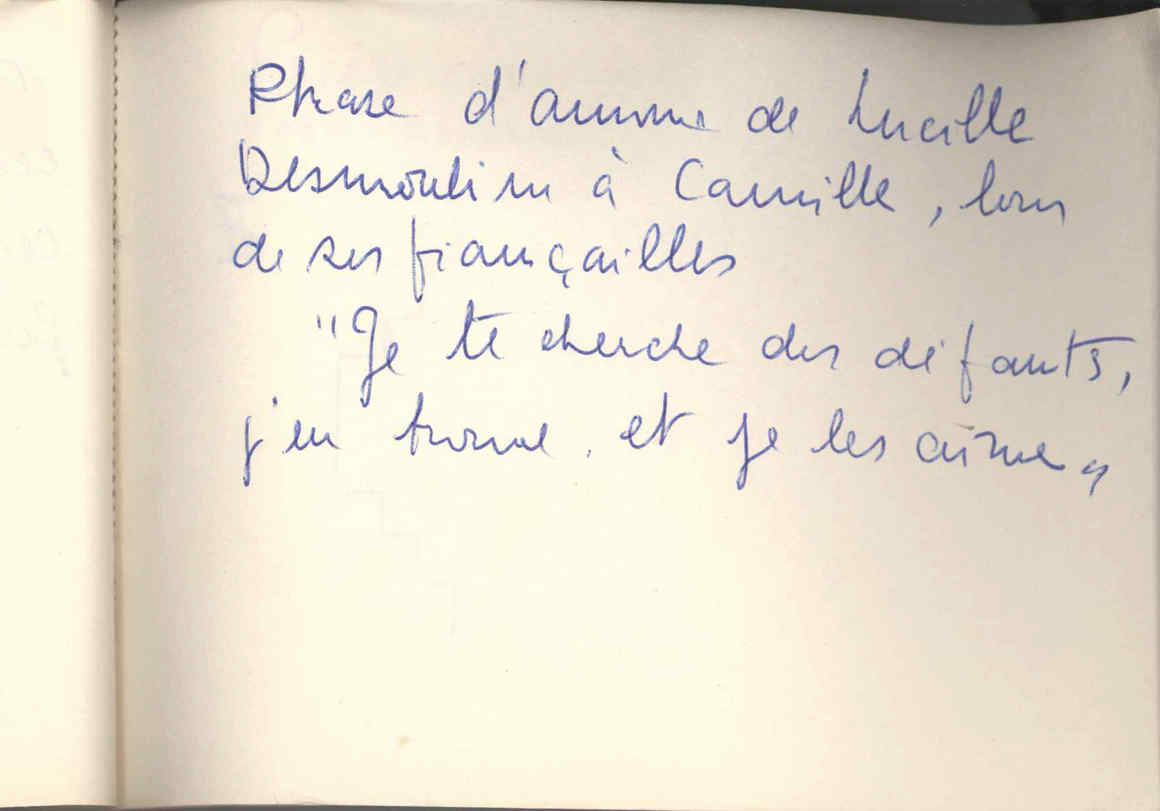 Phrase d'amour de Lucille
Desmoulin à Camille, lors
de ses fiançailles
"Je te cherche des défauts,
j'en trouve, et je les aime"